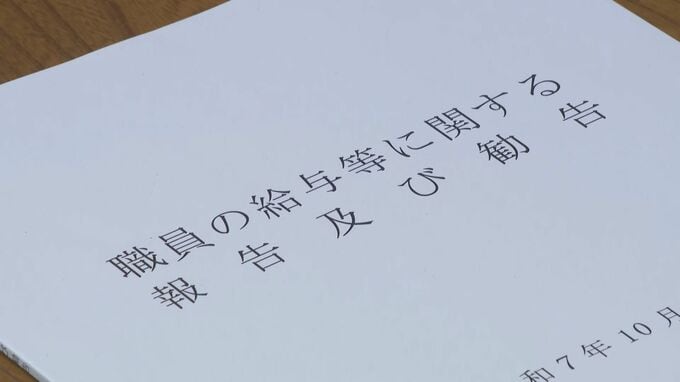 職員の給与等に関する
報告及び勧告
和7年10月